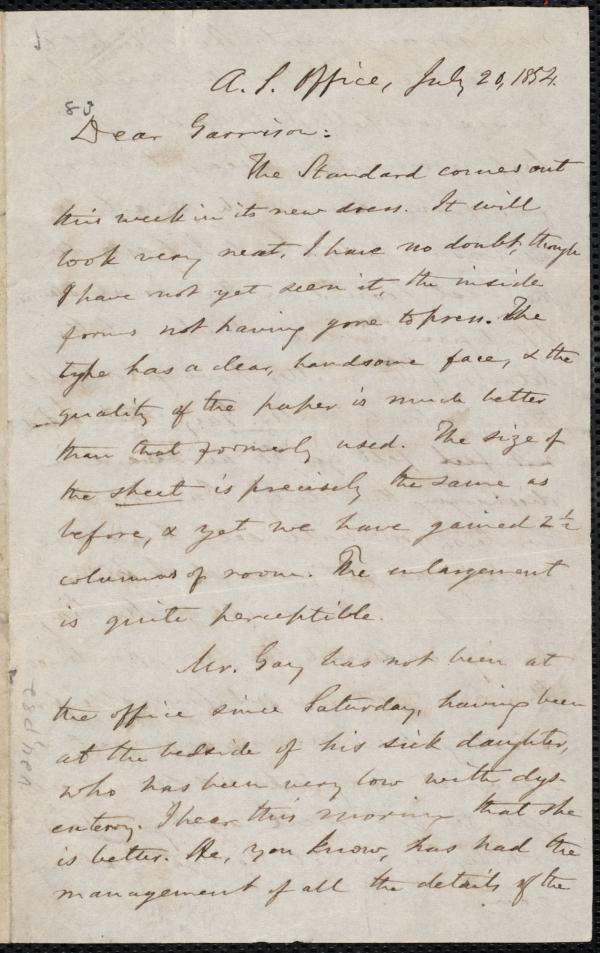 A. S. Office, July 20, 1854.
83
Dear Garrison:
The Standard comes out
this week in its new dress. It will
look very neat, I have no doubt, though
I have not yet seen it, the inside
forms not having gone to press. The
type has a clear, handsome face, & the
quality of the paper is much better
than that formerly used. The size of
the sheet is precisely the same as
before, & yet we have gained 2 ½
columns of room. The enlargement
is quite perceptible.
Mr. Gay has not been at
the office since Saturday, having been
at the bedside of his sick daughter,
who has been very low with dys-
entery. I hear this morning that she
is better. He, you know, has had the
management of all the details of the